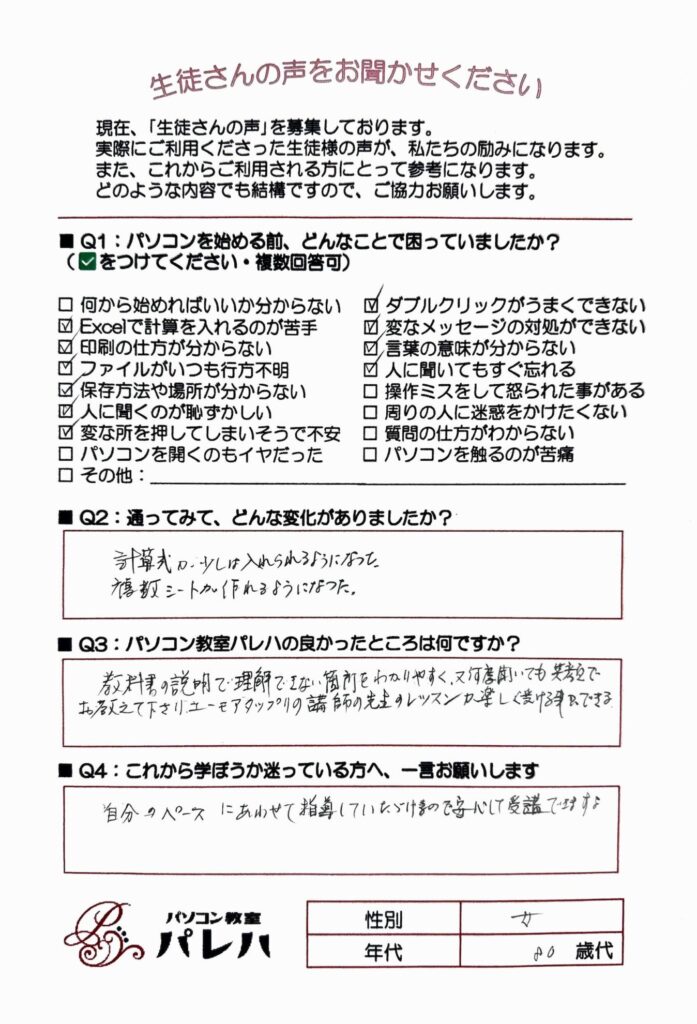 生徒さんの声をお聞かせください
現在、「生徒さんの声」を募集しております。
実際にご利用くださった生徒様の声が、私たちの励みになります。
また、これからご利用される方にとって参考になります。
どのような内容でも結構ですので、ご協力お願いします。
■ Q1：パソコンを始める前、どんなことで困っていましたか？
（☑をつけてください・複数回答可）
□ 何から始めればいいか分からない
☑ Excelで計算を入れるのが苦手
☑ 印刷の仕方が分からない
☑ ファイルがいつも行方不明
☑ 保存方法や場所が分からない
☑ 人に聞くのが恥ずかしい
☑ 変な所を押してしまいそうで不安
□ パソコンを開くのもイヤだった
□ その他：
☑ ダブルクリックがうまくできない
☑ 変なメッセージの対処ができない
☑ 言葉の意味が分からない
☑ 人に聞いてもすぐ忘れる
□ 操作ミスをして怒られた事がある
□ 周りの人に迷惑をかけたくない
□ 質問の仕方がわからない
□ パソコンを触るのが苦痛
■ Q2：通ってみて、どんな変化がありましたか？
計算式が少しは入れられるようになった
複数シートが作れるようになった。
■ Q3：パソコン教室パレハの良かったところは何ですか？
教科書の説明で理解できない箇所をわかりやすく、又何度聞いても笑顔で
お教えて下さり、ユーモアタップリの講師の先生のレッスンが楽しく受ける事ができる
■ Q4：これから学ぼうか迷っている方へ、一言お願いします
自分のペースにあわせて指導していただけるので安心して受講できますよ
パソコン教室
パレハ
性別 女
年代 80 歳代